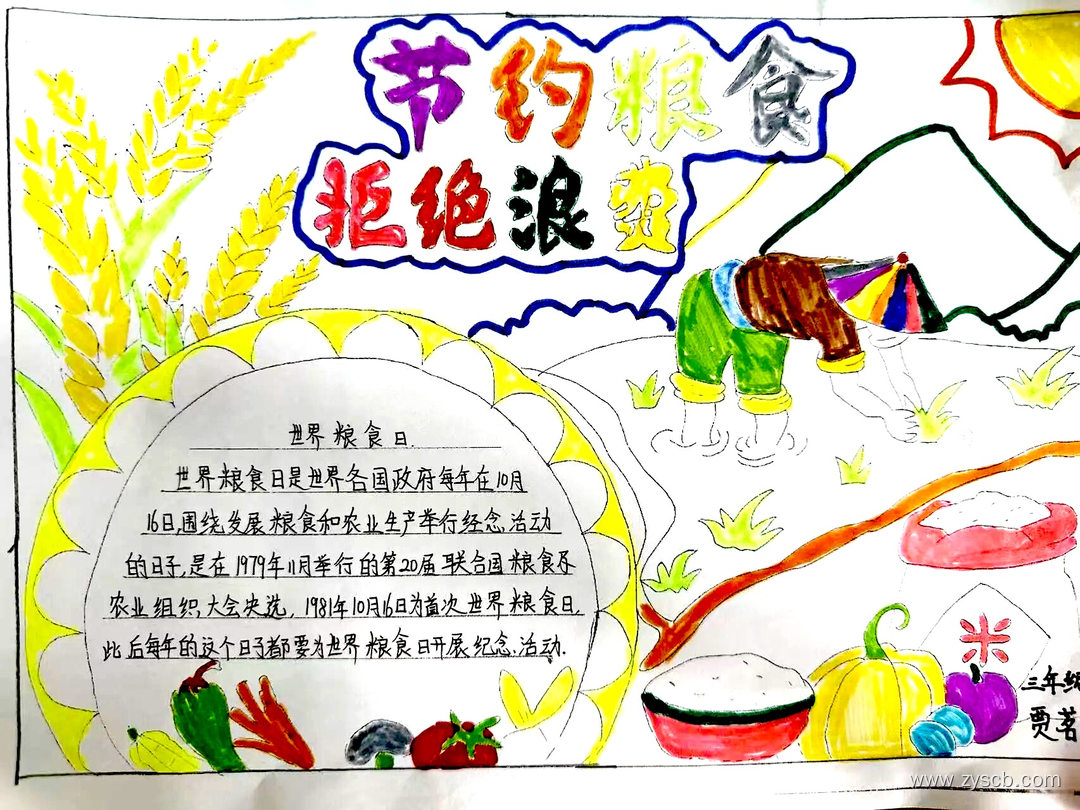 节约粮食
拒绝浪费
世界粮食日
世界粮食日是世界各国政府每年在10月
16日,围绕发展粮食和农业生产举行纪念活动
的日子,是在1979年11月举行的第20届联合国粮食及
农业组织大会决选,1981年10月16日为首次世界粮食日,
此后每年的这个日子都要为世界粮食日开展纪念活动.
米
三年级
贾茗
www.zyscb.com